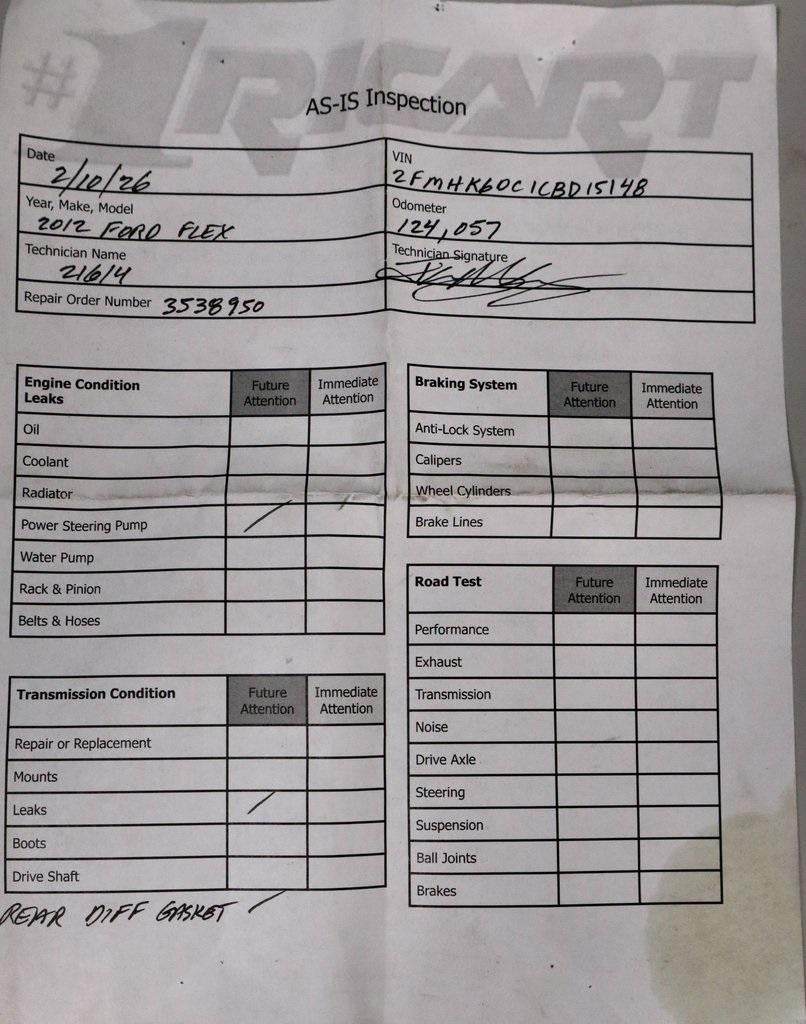 #1 RICART
AS-IS Inspection
Date
2/10/26
VIN
2FMHK60C1CBD15148
Year, Make, Model
2012 FORD FLEX
Odometer
124,057
Technician Name
21614
Technician Signature
Repair Order Number 3538950
Engine Condition
Leaks
Future
Attention
Immediate
Attention
Oil
Coolant
Radiator
Power Steering Pump
Water Pump
Rack & Pinion
Belts & Hoses
Transmission Condition
Future
Attention
Immediate
Attention
Repair or Replacement
Mounts
Leaks
Boots
Drive Shaft
REAR DIFF GASKET
Braking System
Future
Attention
Immediate
Attention
Anti-Lock System
Calipers
Wheel Cylinders
Brake Lines
Road Test
Future
Attention
Immediate
Attention
Performance
Exhaust
Transmission
Noise
Drive Axle
Steering
Suspension
Ball Joints
Brakes